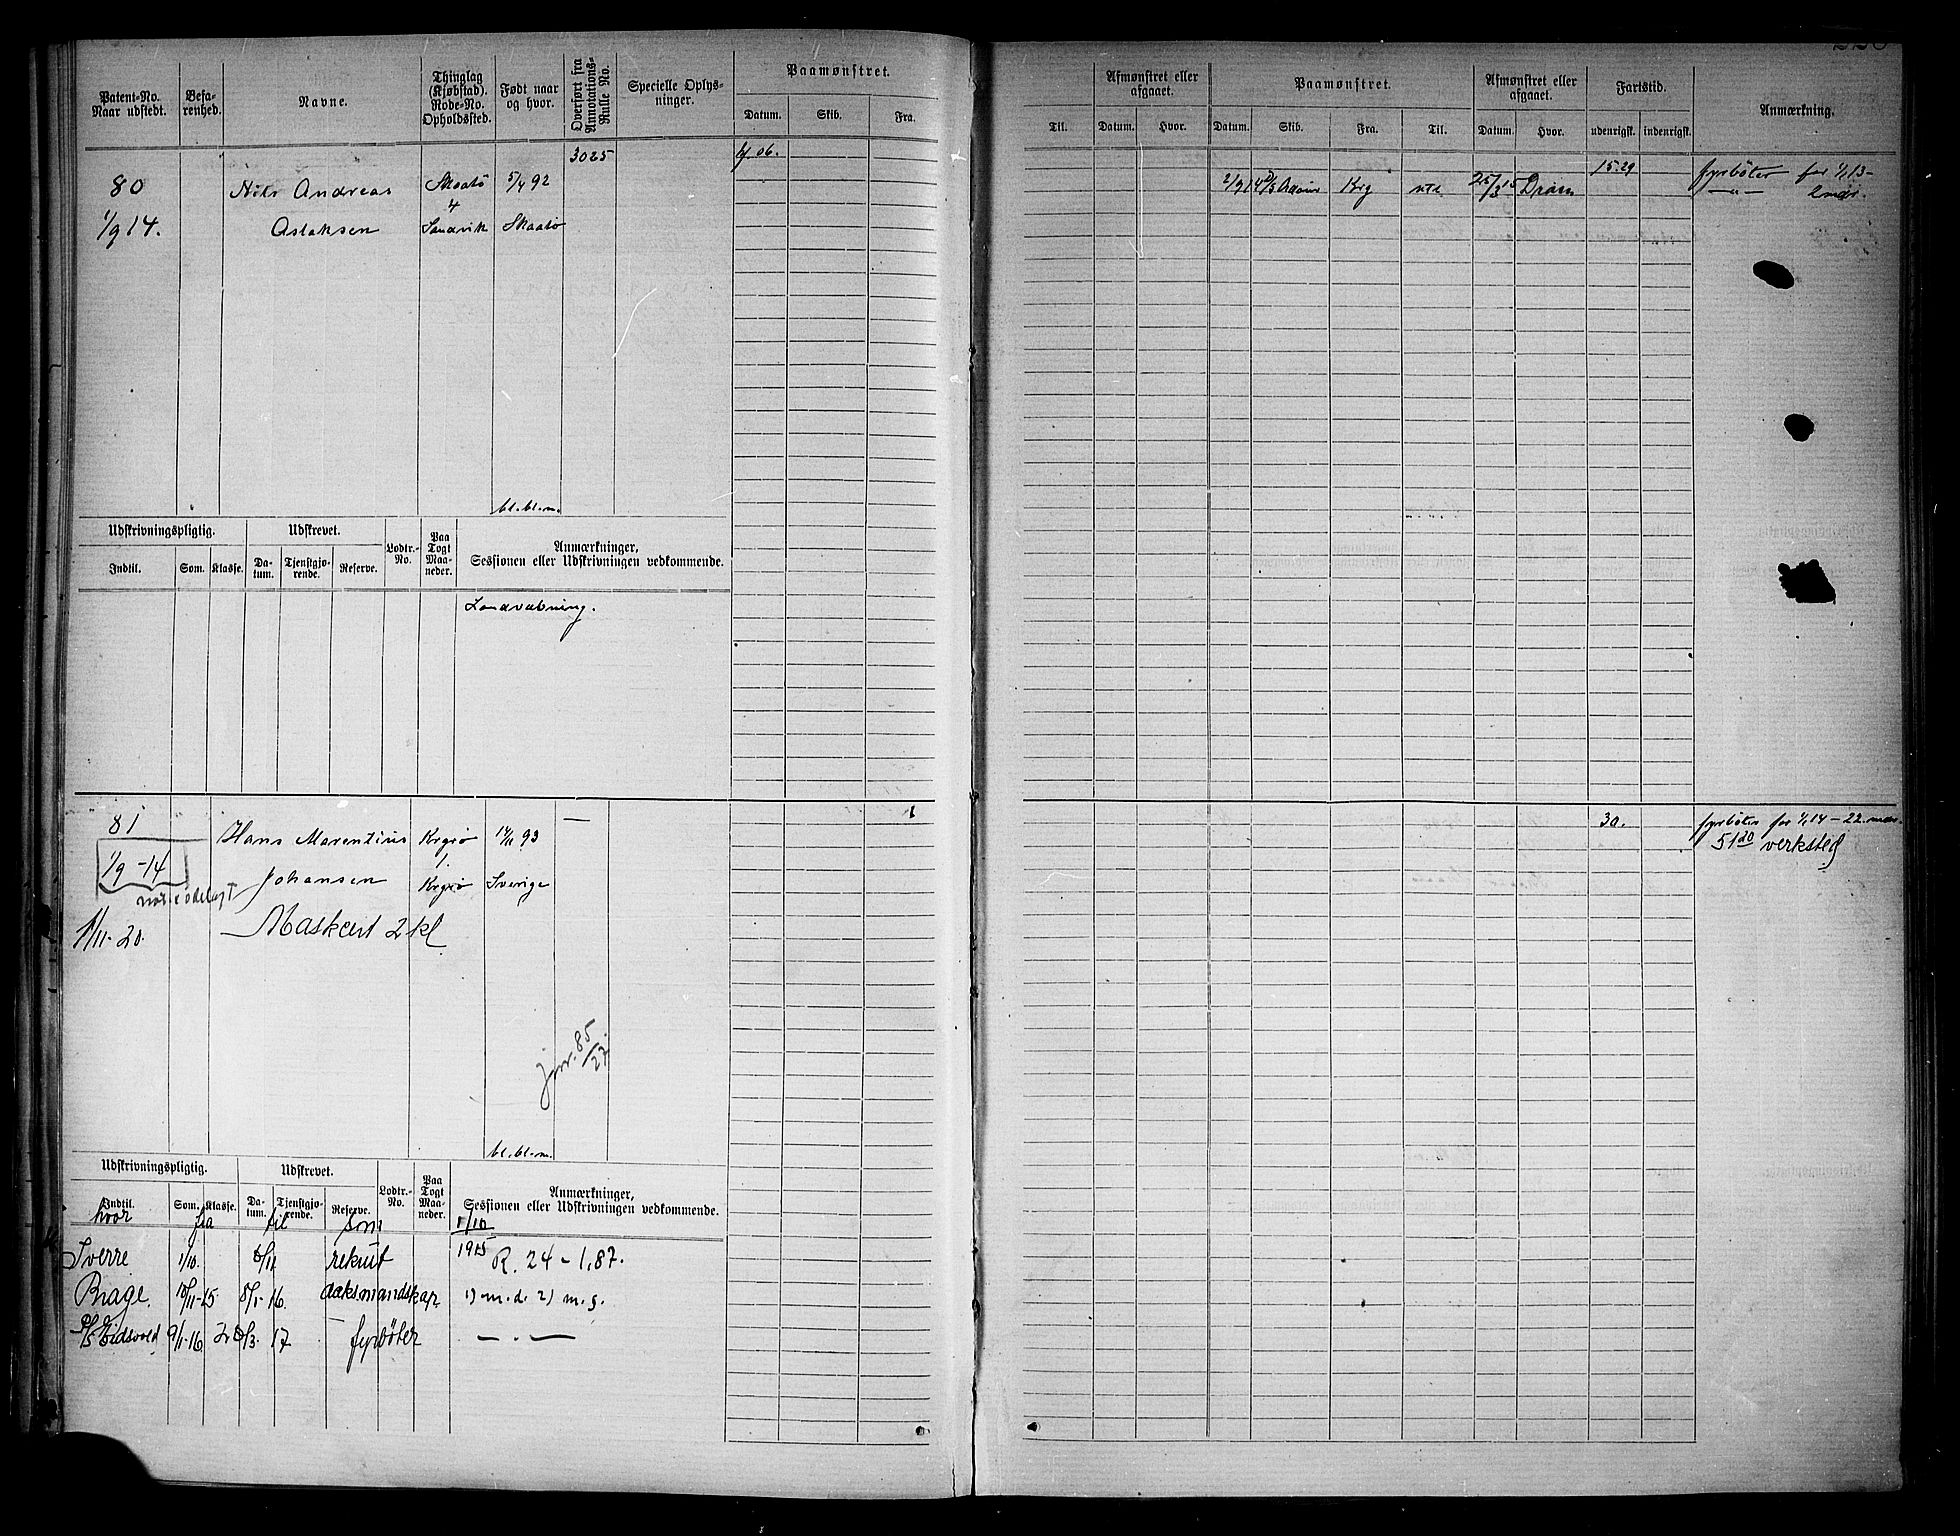 Patent-No. Naar udstedt.
Befarenhed.
Navne.
Thinglag (Kjøbstad). Rode-No. Opholdssted.
Født naar og hvor.
Overført fra Annotations-Rulle No.
Specielle Oplysninger.
Paamønstret.
Datum. Skib. Fra.
3025
6/ 06.
80 Nils Andreas Skaatø 5/4 92
4
1/9 14. Aslaksen Sandvik Skaatø
bl.bl.m.
Udskrivningspligtig. Udskrevet. Lodtr.-No. Paa Togt Maaneder. Anmærkninger, Sessionen eller Udskrivningen vedkommende.
Indtil. Som. Klasse. Datum. Tjenstgjørende. Reserve.
Landvæbning.
81 Hans Marentius Krgrø 14/11 93 —
1.
1/9 -14 Johansen Krgrø Sverige
1/11-20. Maskcert 2kl
jnr. 85/27.
bl.bl.m.
Udskrivningspligtig. Udskrevet. Lodtr.-No. Paa Togt Maaneder. Anmærkninger, Sessionen eller Udskrivningen vedkommende.
Indtil. Som. Klasse. Datum. Tjenstgjørende. Reserve.
hvor fra til som 1/10
Sverre 1/10. 8/11. rekrut 1915 R. 24 - 1,87.
Brage. 10/11-15 8/1-16. dæksmandskap 1) m.d. 2) m.g.
P/S Eidsvold 9/1-16 28/3. 17 fyrbøter — . —
Til.
Afmønstret eller afgaaet.
Datum. Hvor.
Paamønstret.
Datum. Skib. Fra. Til.
Afmønstret eller afgaaet.
Datum. Hvor.
Fartstid.
udenrigsk. indenrigsk.
Anmærkning.
15.29 fyrbøter for 1/1 13-
2/9 14 D/S Krg ute 25/3 15 Dram — " —
30. fyrbøter for 1/1 14 - 22 mdr.
51 20 verksted